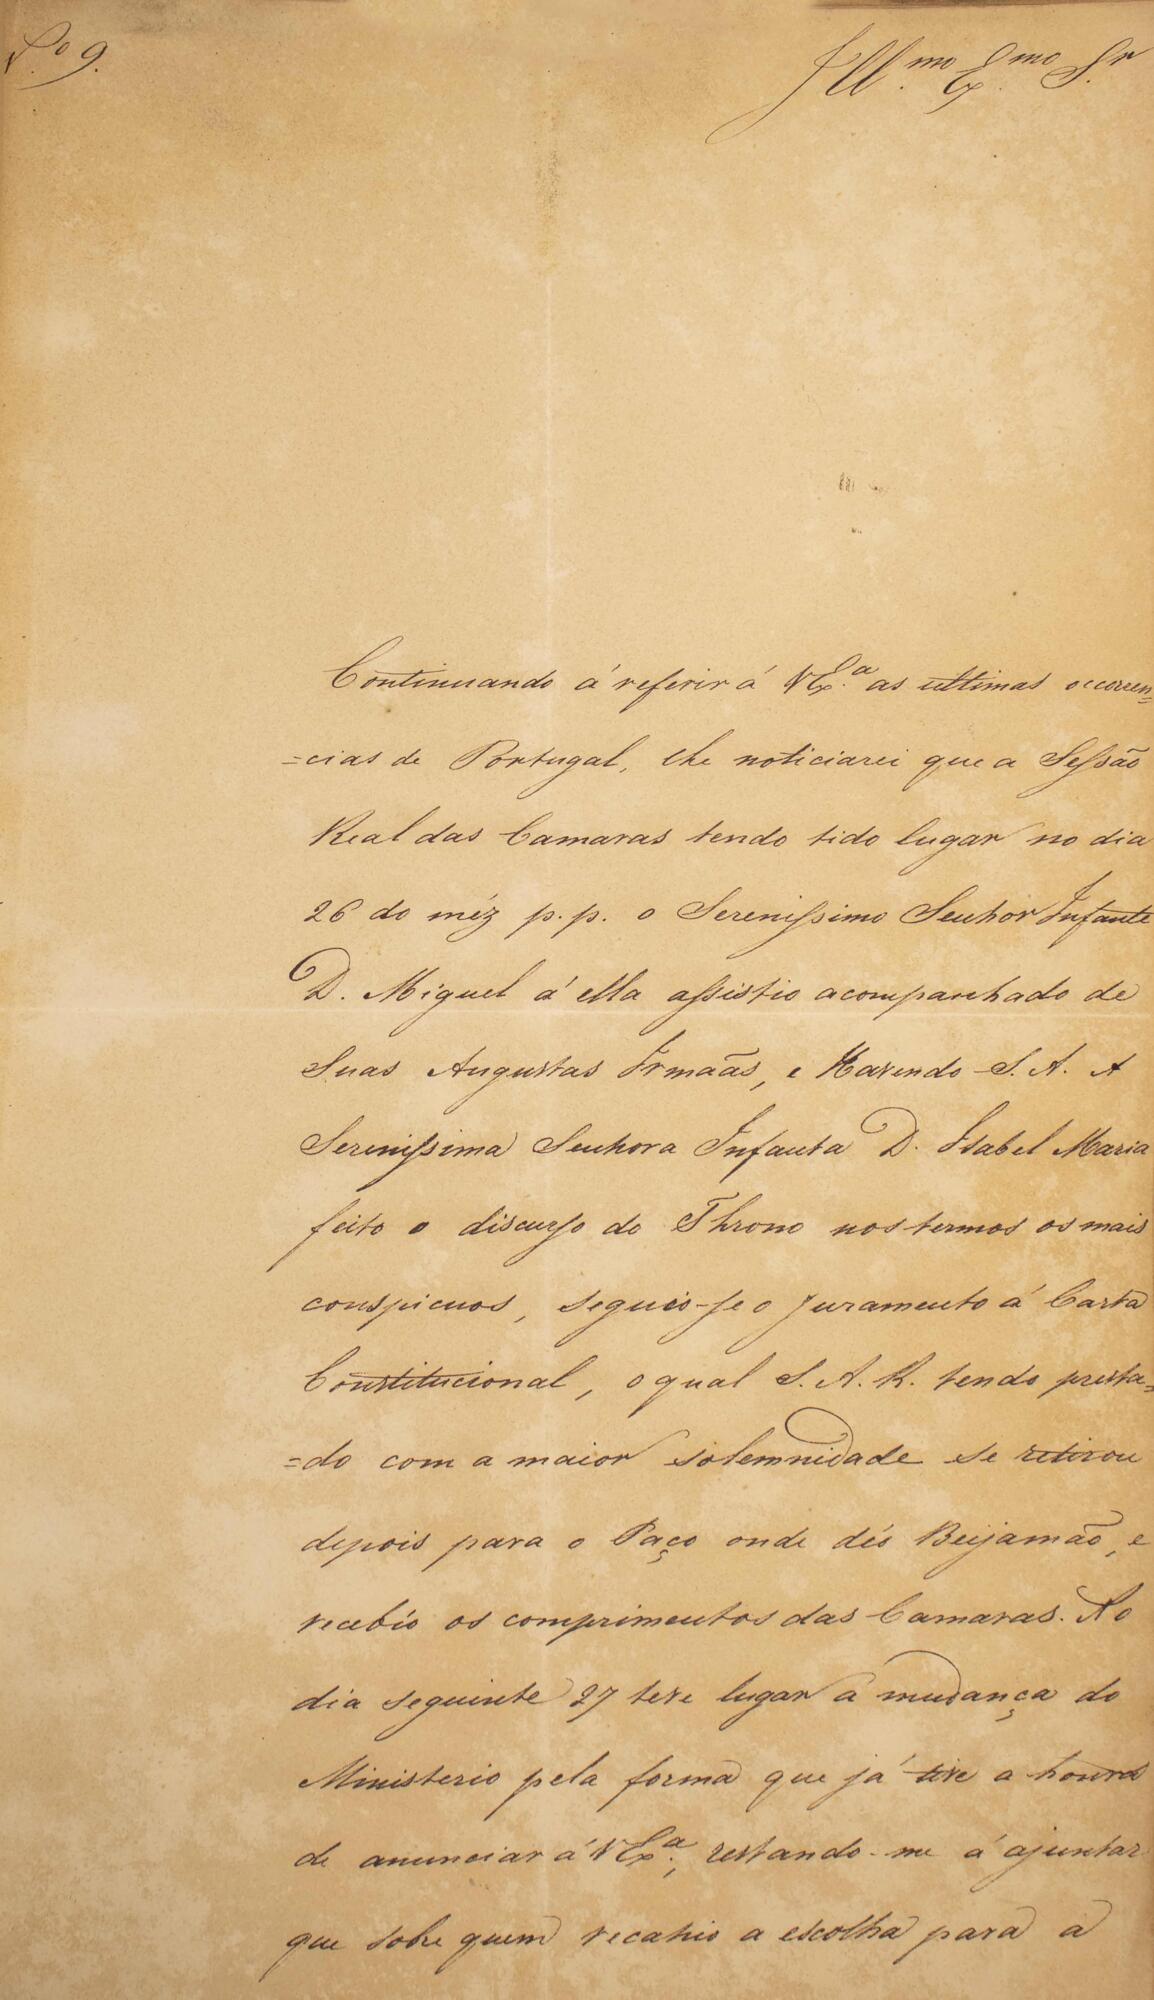 L.º 9.
Ill.mo Ex.mo Sr
Continuando á referir á V Ex.ª as ultimas occorren=
=cias de Portugal, lhe noticiarei que a Sessão
Real das Camaras tendo tido lugar no dia
26 do méz p. p. o Serenissimo Senhor Infante
D. Miguel á ella assistio acompanhado de
Suas Augustas Irmaãs, e Havendo S. A. A
Serenissima Senhora Infanta D. Isabel Maria
feito o discurso do Throno nos termos os mais
conspicuos, seguio-se o juramento á Carta
Constitucional, o qual S. A. R. tendo presta=
=do com a maior solemnidade se retirou
depois para o Paço onde déo Beijamão, e
recebío os comprimentos das Camaras. No
dia seguinte 27 teve lugar a mudança do
Ministerio pela forma que já tive a honra
de anunciar á V Ex.ª, restando-me á ajuntar
que sobre quem recahio a escolha para a